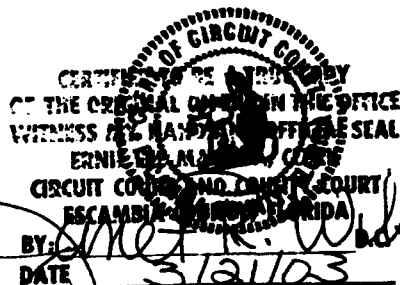 CLERK OF CIRCUIT COURT
CERTIFIED TO BE A TRUE COPY
OF THE ORIGINAL ON FILE IN THIS OFFICE
WITNESS MY HAND AND OFFICIAL SEAL
ERNIE LEE MAGAHA, CLERK
CIRCUIT COURT AND COUNTY COURT
ESCAMBIA COUNTY FLORIDA
BY: D.C.
DATE 3/21/03